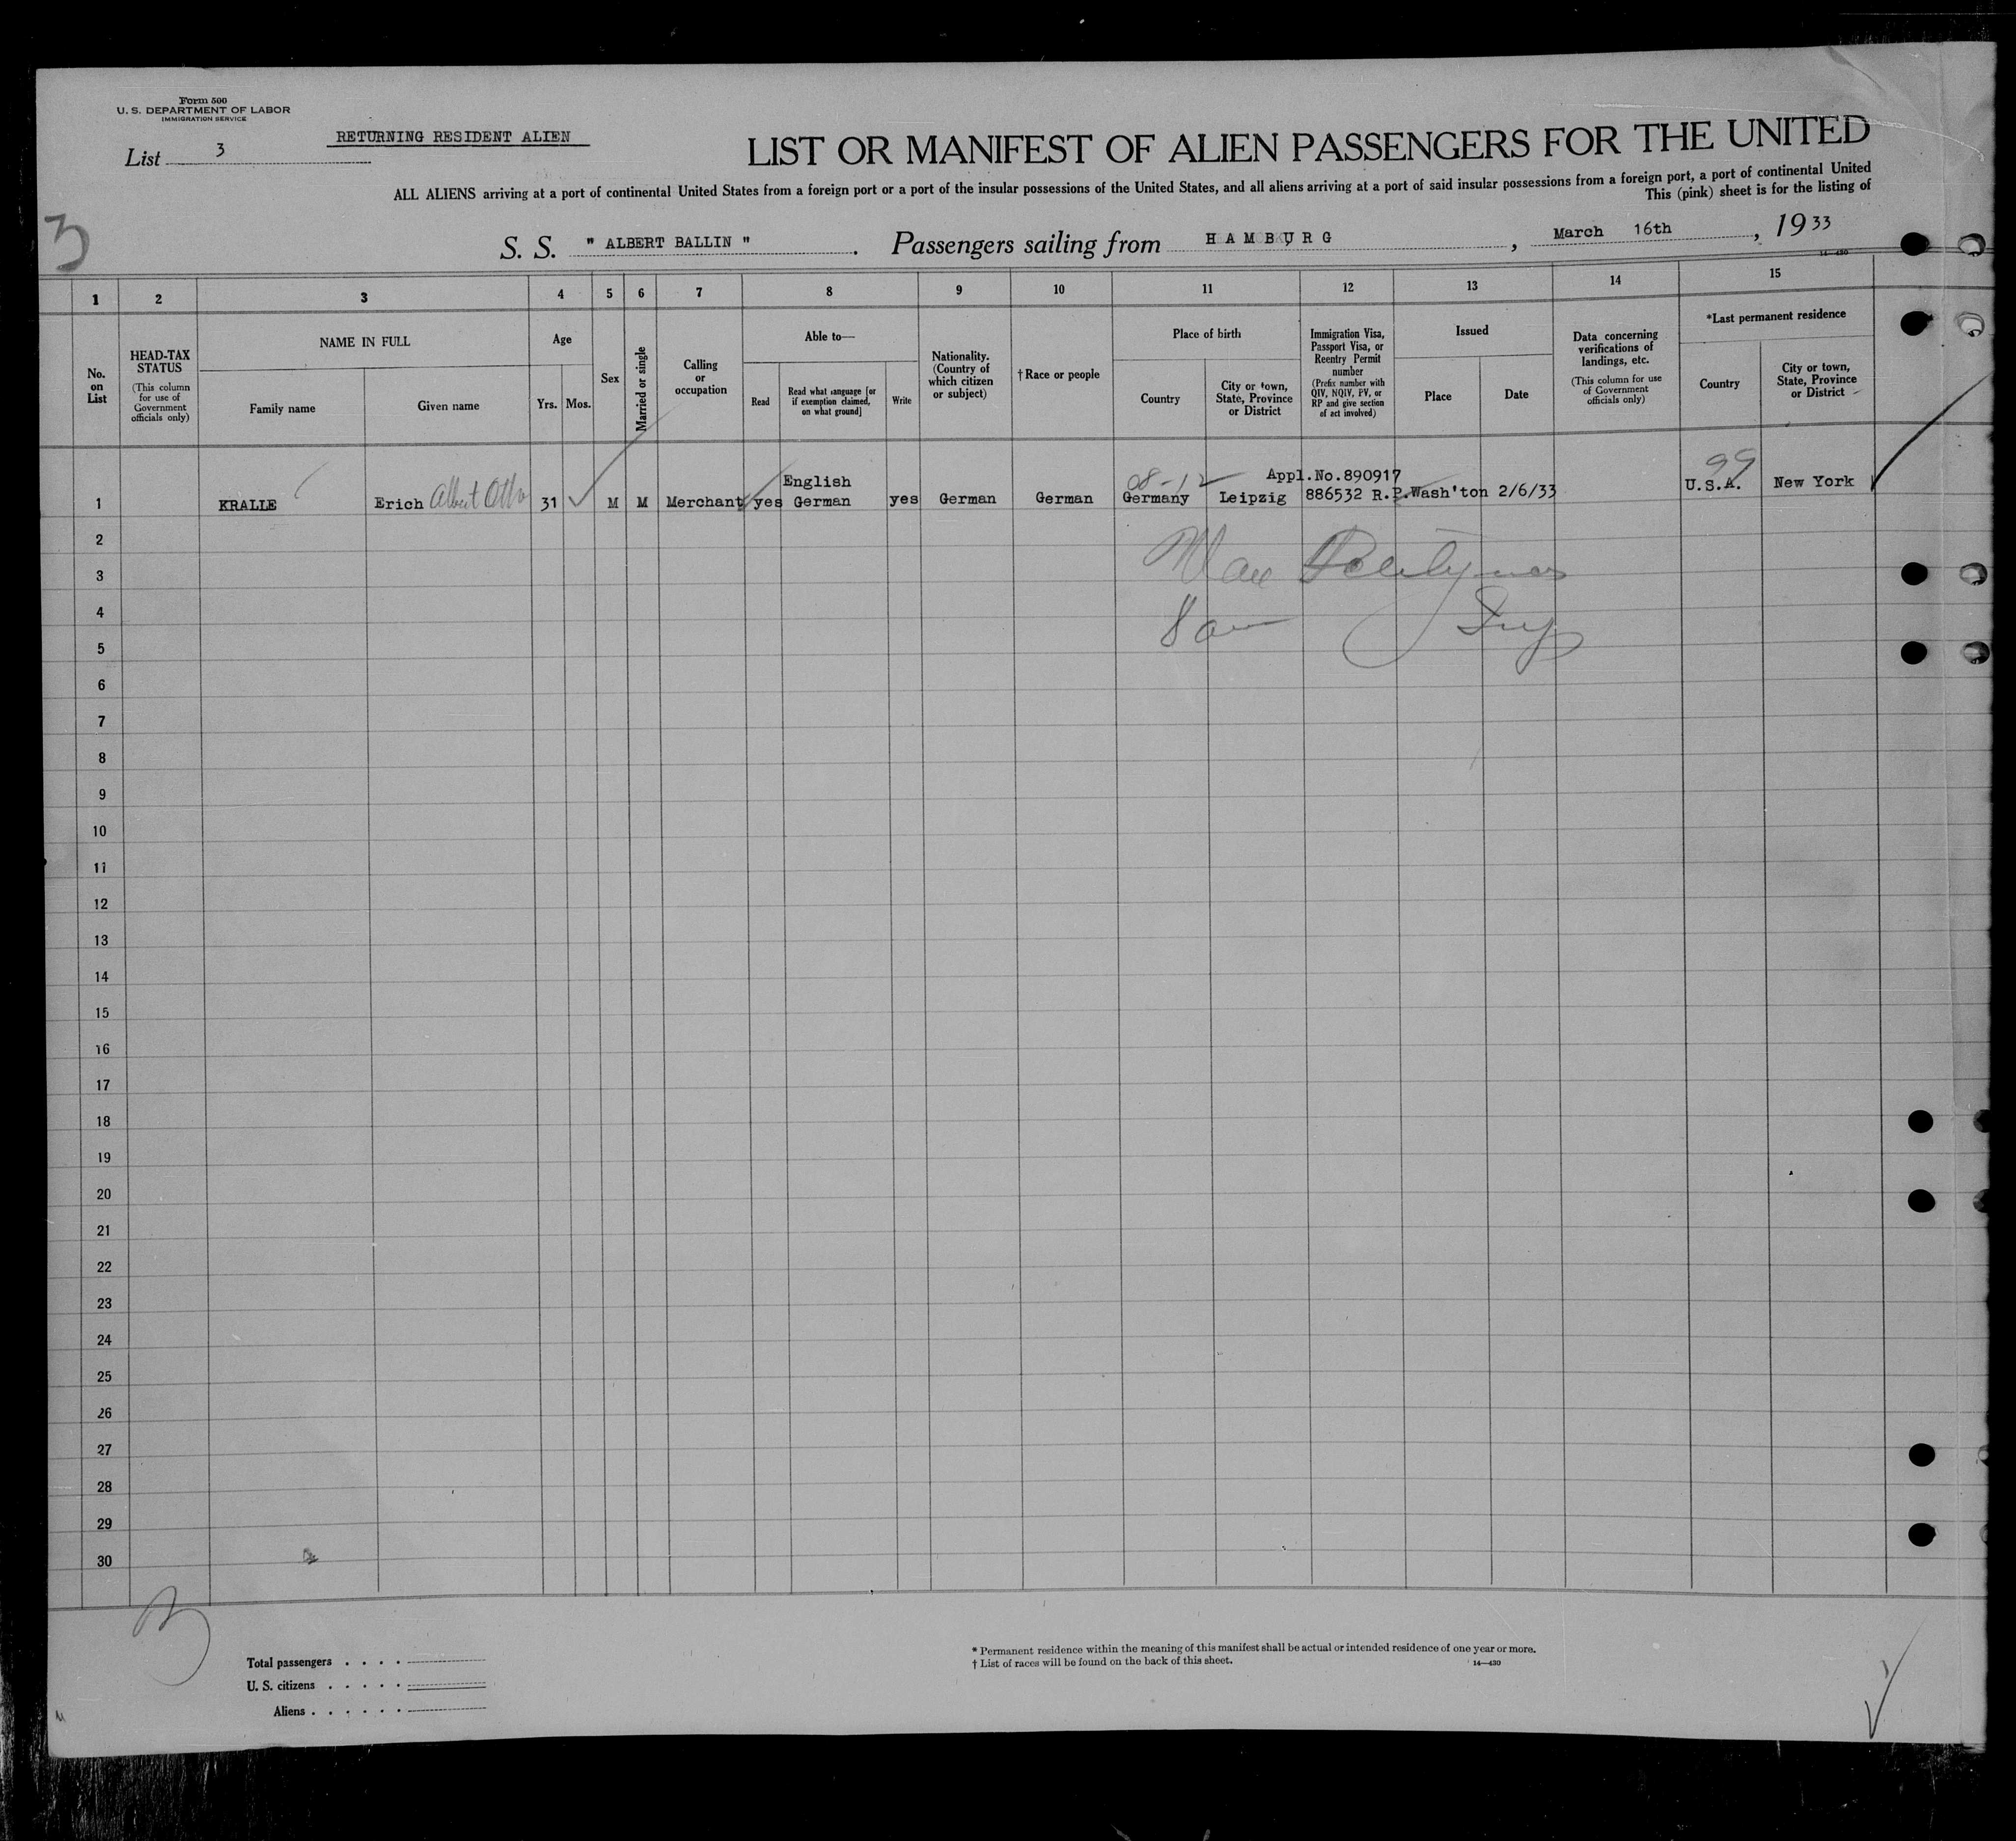 Form 500
U. S. DEPARTMENT OF LABOR
IMMIGRATION SERVICE
RETURNING RESIDENT ALIEN
List 3
LIST OR MANIFEST OF ALIEN PASSENGERS FOR THE UNITED
ALL ALIENS arriving at a port of continental United States from a foreign port or a port of the insular possessions of the United States, and all aliens arriving at a port of said insular possessions from a foreign port, a port of continental United
This (pink) sheet is for the listing of
3
S. S. " ALBERT BALLIN ". Passengers sailing from HAMBURG, March 16th, 1933
14—430
1 2 3 4 5 6 7 8 9 10 11 12 13 14 15
No. on List
HEAD-TAX STATUS
(This column for use of Government officials only)
NAME IN FULL
Family name
Given name
Age
Yrs. Mos.
Sex
Married or single
Calling or occupation
Able to—
Read
Read what language [or if exemption claimed, on what ground]
Write
Nationality. (Country of which citizen or subject)
†Race or people
Place of birth
Country
City or town, State, Province or District
Immigration Visa, Passport Visa, or Reentry Permit number
(Prefix number with QIV, NQIV, PV, or RP and give section of act involved)
Issued
Place
Date
Data concerning verifications of landings, etc.
(This column for use of Government officials only)
*Last permanent residence
Country
City or town, State, Province or District
English 08-12 Appl.No.890917 99
1 KRALLE Erich Albert Otto 31 M M Merchant yes German yes German German Germany Leipzig 886532 R.P. Wash'ton 2/6/33 U.S.A. New York
2
3
4
5
6
7
8
9
10
11
12
13
14
15
16
17
18
19
20
21
22
23
24
25
26
27
28
29
30
Total passengers . . . .
U. S. citizens . . . . .
Aliens . . . . . .
* Permanent residence within the meaning of this manifest shall be actual or intended residence of one year or more.
† List of races will be found on the back of this sheet.
14—430